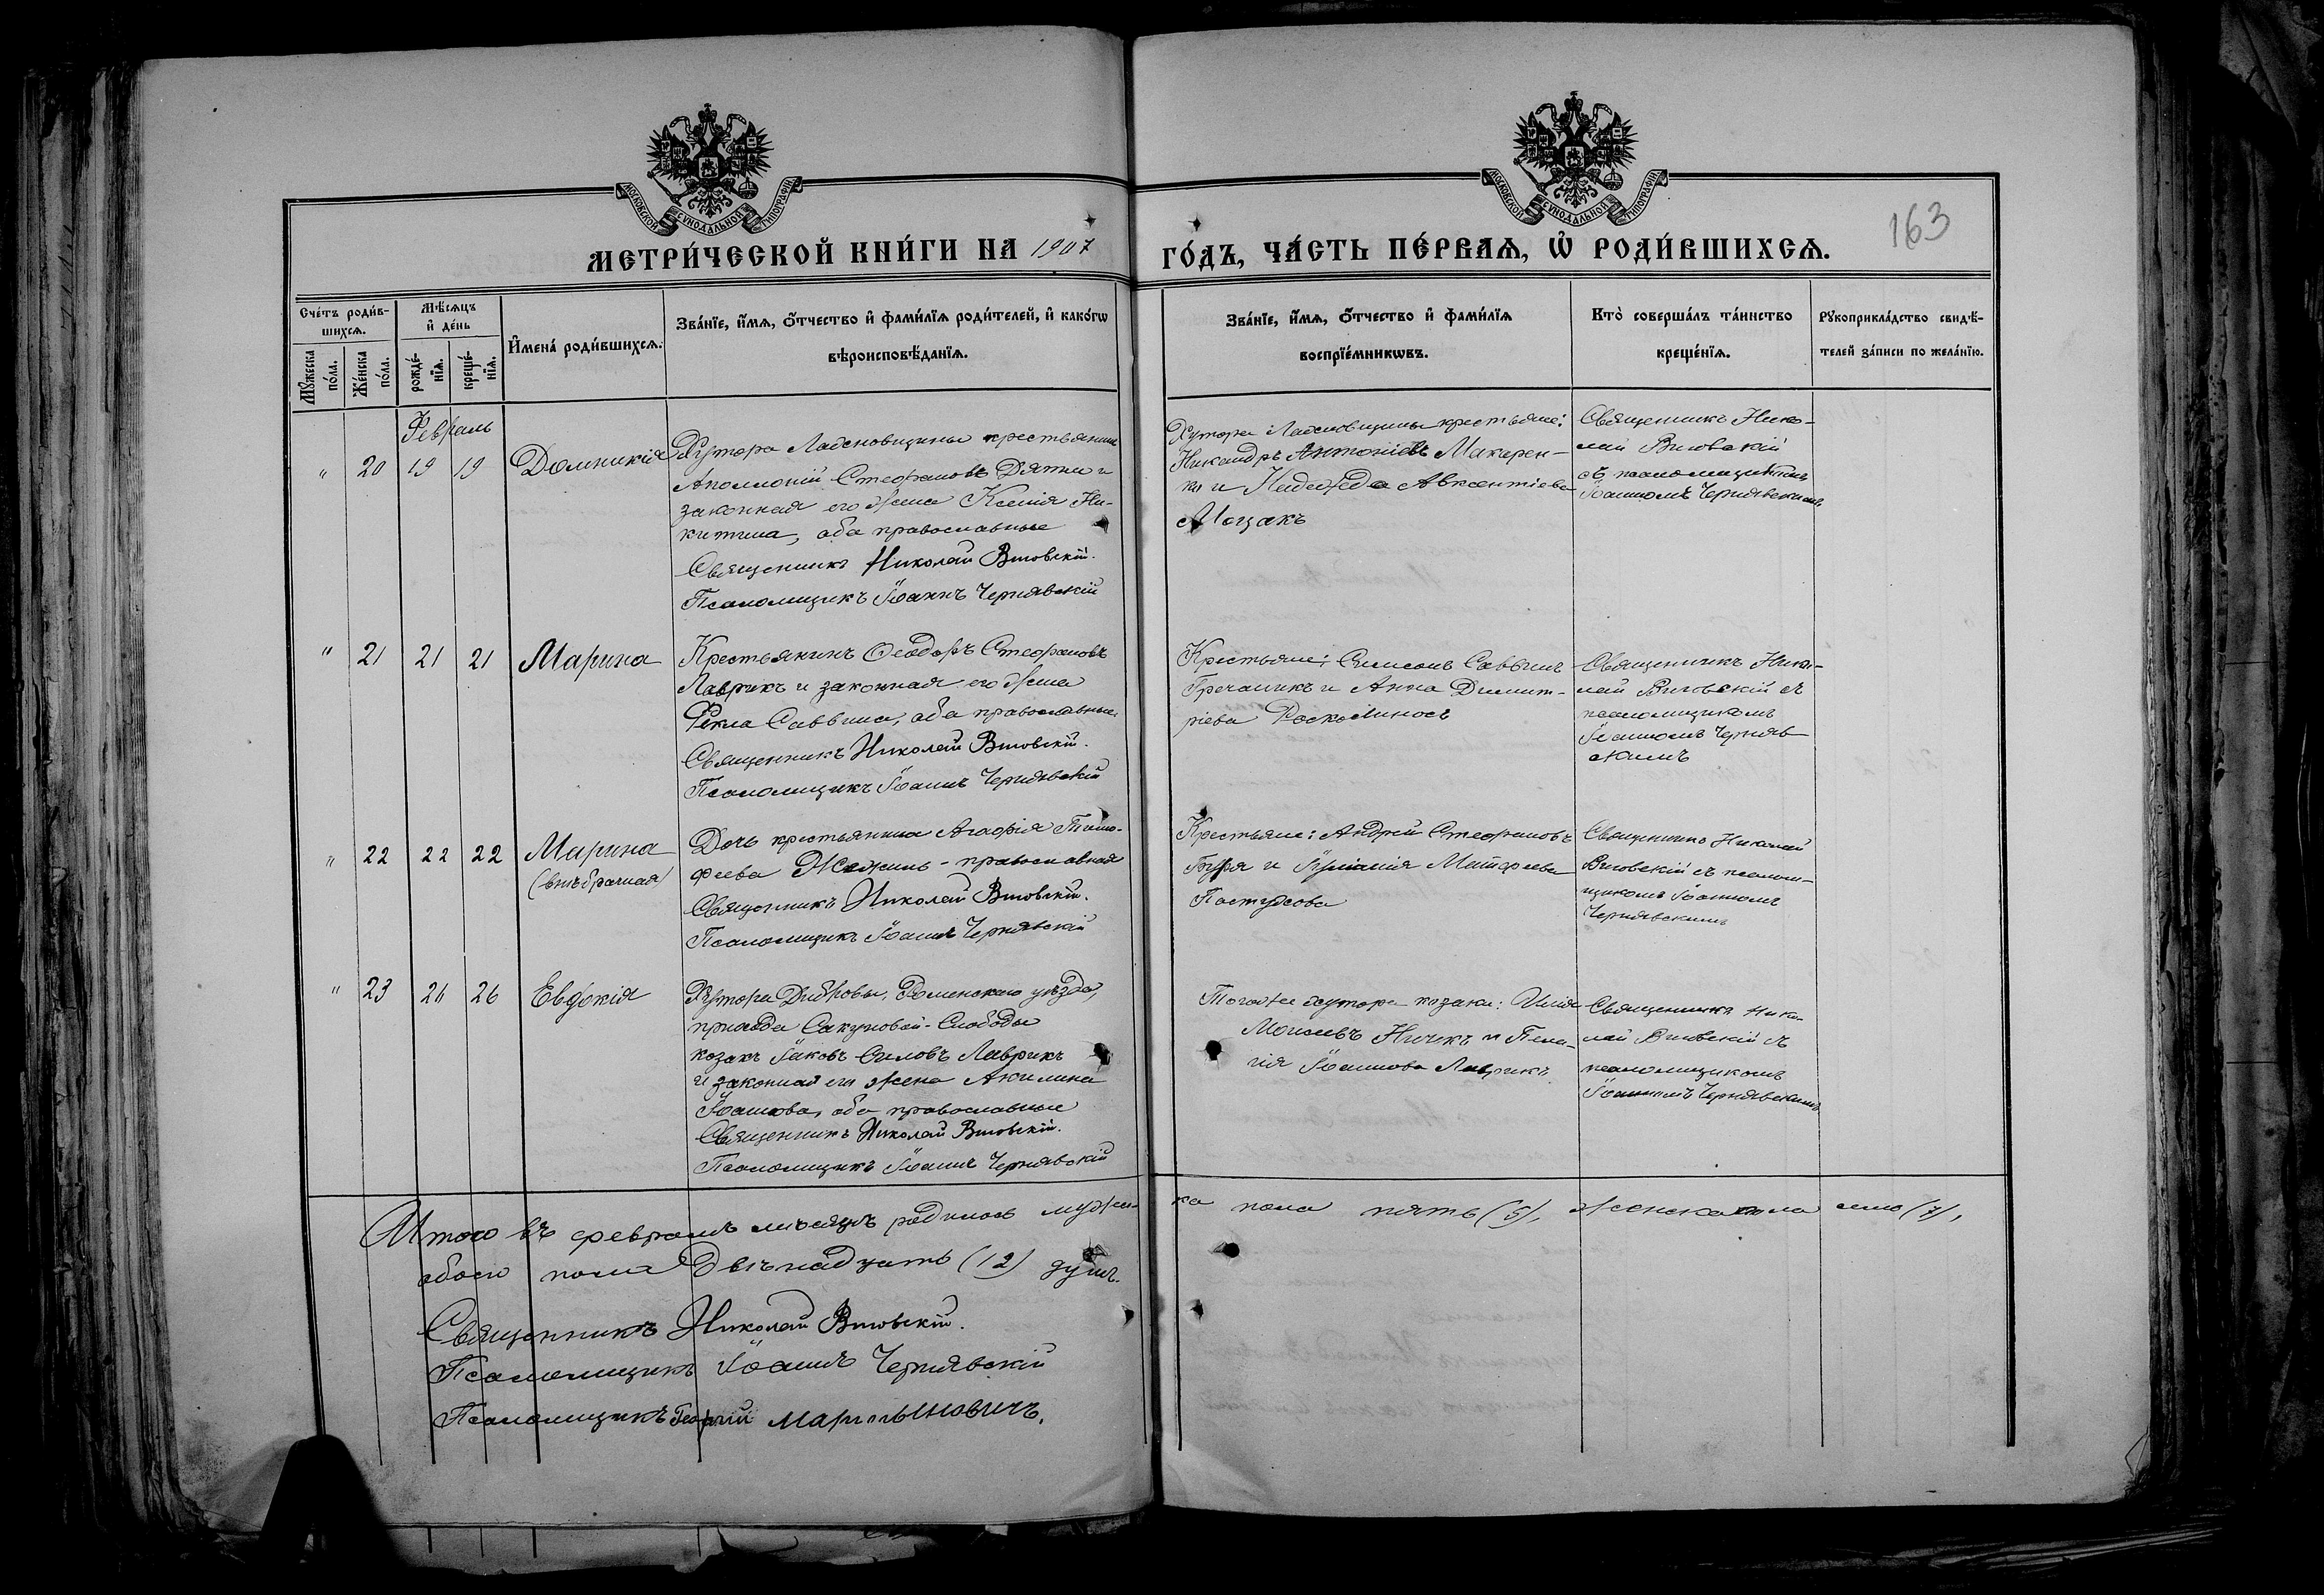 МОСКОВСКОЙ СѴНОДАЛЬНОЙ ТИПОГРАФІИ
МОСКОВСКОЙ СѴНОДАЛЬНОЙ ТИПОГРАФІИ
163
МЕТРИ́ЧЕСКОЙ КНИ́ГИ НА 1907
ГО́ДЪ, ЧА́СТЬ ПЕ́РВАѦ, Ѡ҆ РОДИ́ВШИХСѦ.
Сче́тъ роди́в-
шихсѧ.
Мꙋ́жеска по́ла.
Же́нска по́ла.
Мѣ́сѧцъ
и҆ де́нь
рожде́-
нїѧ.
креще́-
нїѧ.
И҆мена́ роди́вшихсѧ.
Зва́нїе, и҆́мѧ, ѻ҆́тчество и҆ фами́лїѧ роди́телей, и҆ како́гѡ
вѣроисповѣ́данїѧ.
Зва́нїе, и҆́мѧ, ѻ҆́тчество и҆ фами́лїѧ
воспрїе́мникѡвъ.
Кто̀ соверша́лъ та́инство
креще́нїѧ.
Рꙋкоприкла́дство свидѣ́-
телей за́писи по жела́нїю.
Февраль
" 20 19 19 Домникія
Хутора крестьянинъ
Аполлоній Стефановъ Дятли и
законная его жена Ксенія Ни-
китина, оба православные
Священникъ Николай
Псаломщикъ Іоаннъ Чернявскій
Хутора крестьяне:
Никандръ Антоніевъ Макарен-
ко и Надежда Авксентіева
Моцакъ
Священникъ Нико-
лай
съ псаломщикомъ
Іоанномъ Чернявскимъ
" 21 21 21 Марина
Крестьянинъ Ѳеодоръ Стефановъ
Лаврикъ и законная его жена
Фекла Саввина, оба православные
Священникъ Николай
Псаломщикъ Іоаннъ Чернявскій
Крестьяне: Симеонъ Саввинъ
Гречаникъ и Анна Димит-
ріева
Священникъ Нико-
лай съ
псаломщикомъ
Іоанномъ Черняв-
скимъ
" 22 22 22 Марина
(внѣбрачная)
Дочь крестьянина Агафія Тимо-
феева православная
Священникъ Николай
Псаломщикъ Іоаннъ Чернявскій
Крестьяне: Андрей Стефановъ
Буря и Іуліанія Матфеева
Священникъ Николай
съ псалом-
щикомъ Іоанномъ
Чернявскимъ
" 23 26 26 Евдокія
Хутора Дибровы, Роменскаго уѣзда,
прихода Сакуновой-Слободы
козакъ Іаковъ Силовъ Лаврикъ
и законная его жена Акилина
Іоаннова, оба православные
Священникъ Николай
Псаломщикъ Іоаннъ Чернявскій
Того же хутора козаки: Илія
Моисеевъ Ничикъ и Пела-
гія Іоаннова Лаврикъ
Священникъ Нико-
лай съ
псаломщикомъ
Іоанномъ Чернявскимъ
Итого въ февралѣ мѣсяцѣ родилось мужес-
ка пола пять (5), женска пола семь (7),
обоего пола двѣнадцать (12) душъ.
Священникъ Николай
Псаломщикъ Іоаннъ Чернявскій
Псаломщикъ Георгій